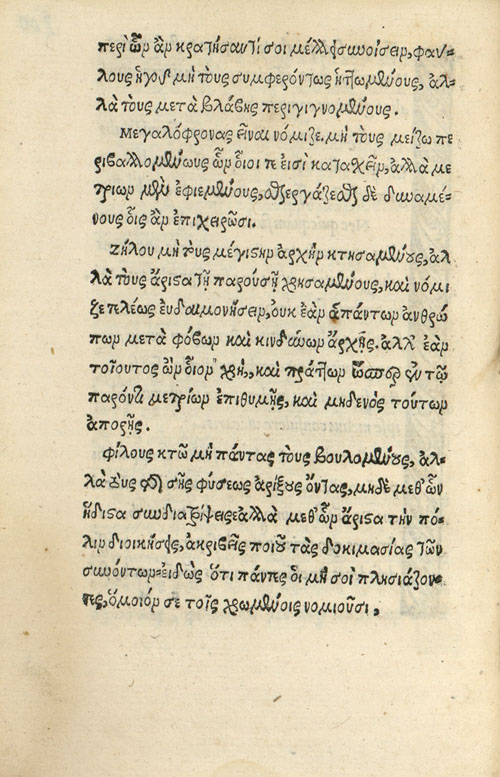 περὶ ὧν ἂν κρατήσαντί σοι μέλλῃ συνοίσειν, φαύ-
λους ἡγοῦ μὴ τοὺς συμφερόντως ἡττωμένους, ἀλ-
λὰ τοὺς μετὰ βλάβης περιγιγνομένους.
Μεγαλόφρονας εἶναι νόμιζε μὴ τοὺς μείζω πε
ριβαλλομένους ὧν οἷοι τε εἰσὶ κατασχεῖν, ἀλλὰ με
τρίων μὲν ἐφιεμένους, ἐξεργάζεσθαι δὲ δυναμέ-
νους οἷς ἂν ἐπιχειρῶσι.
Ζήλου μὴ τοὺς μέγιστην ἀρχὴν κτησαμένους, ἀλ
λὰ τοὺς ἄριστα τῇ παρούσῃ χρησαμένους, καὶ νόμι
ζε τελέως εὐδαιμονήσειν, οὐκ ἐὰν ἁπάντων ἀνθρώ
πων μετὰ φόβων καὶ κινδύνων ἄρχῃς. ἀλλ' ἐὰν
τοιοῦτος ὢν οἷον χρὴ, καὶ πράττων ὥσπερ ἐν τῷ
παρόντι μετρίων ἐπιθυμῇς, καὶ μηδενὸς τούτων
ἀπορῇς.
Φίλους κτῶ μὴ πάντας τοὺς βουλομένους, ἀλ-
λὰ τοὺς τῆς σῆς φύσεως ἀξίους ὄντας, μηδὲ μεθ' ὧν
ἥδιστα συνδιατρίψεις ἀλλὰ μεθ' ὧν ἄριστα τὴν πό-
λιν διοικήσεις, ἀκριβεῖς ποιοῦ τὰς δοκιμασίας τῶν
συνόντων εἰδὼς ὅτι πάντες οἱ μή σοι πλησιάζον-
τες, ὅμοιόν σε τοῖς χρωμένοις νομιοῦσι,